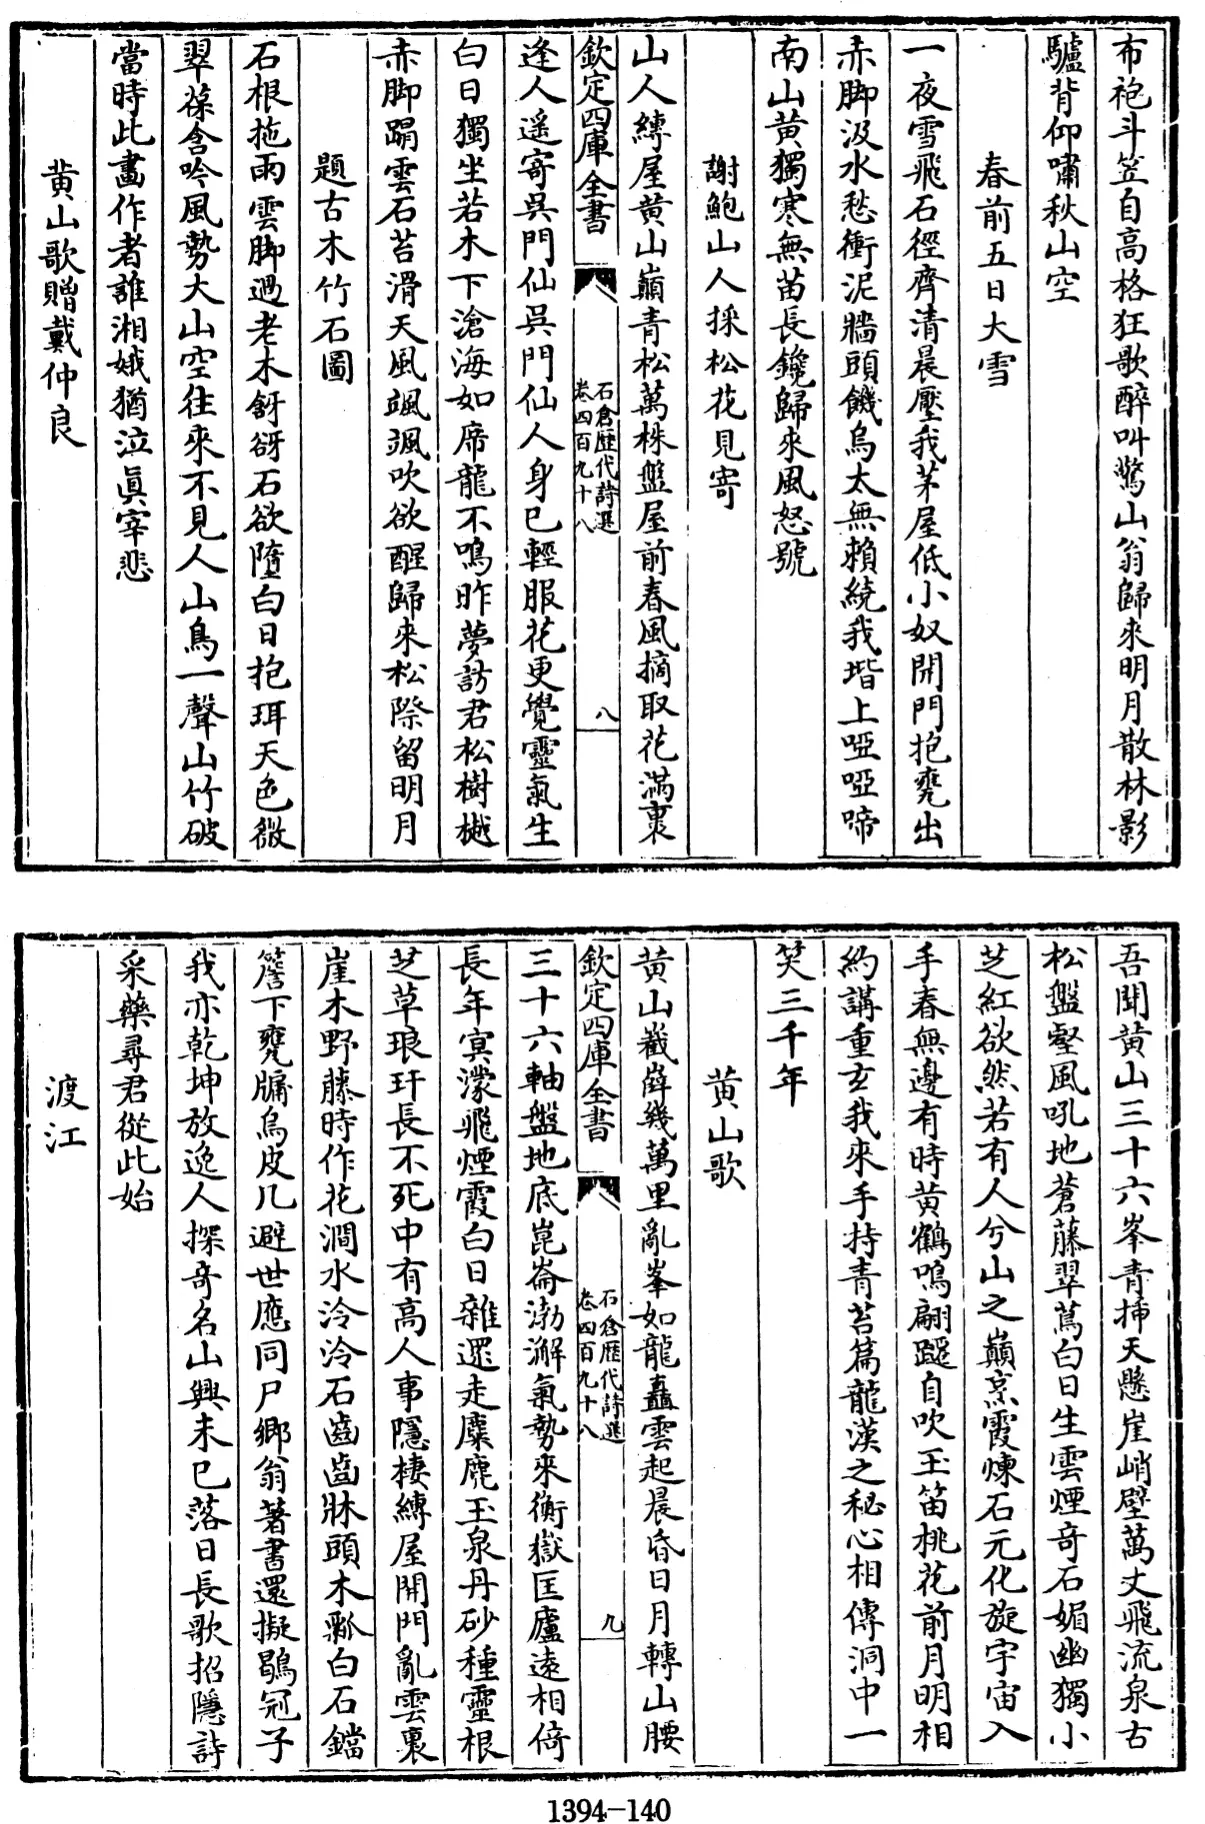 布袍斗笠自高格狂歌醉叫驚山翁歸來明月散林影
驢背仰嘯秋山空
春前五日大雪
一夜雪飛石徑齊清晨壓我茅屋低小奴開門抱甕出
赤脚汲水愁衝泥牆頭饑烏太無賴繞我堦上啞啞啼
南山黃獨寒無苗長鑱歸來風怒號
謝鮑山人採松花見寄
山人縛屋黃山巔青松萬株盤屋前春風摘取花滿裹
欽定四庫全書
石倉歷代詩選
卷四百九十八
八
逢人遥寄吳門仙吳門仙人身已輕服花更覺靈氣生
白日獨坐若木下滄海如席龍不鳴昨夢訪君松樹樾
赤脚蹋雲石苔滑天風颯颯吹欲醒歸來松際留明月
題古木竹石圖
石根拖雨雲脚過老木谺谺石欲墮白日抱珥天色微
翠葆含吟風勢大山空往來不見人山鳥一聲山竹破
當時此畫作者誰湘娥猶泣眞宰悲
黃山歌贈戴仲良
吾聞黃山三十六峯青揷天懸崖峭壁萬丈飛流泉古
松盤壑風吼地蒼藤翠蔦白日生雲煙奇石媚幽獨小
芝紅欲然若有人兮山之巔烹霞煉石元化旋宇宙入
手春無邊有時黃鶴鳴翩躚自吹玉笛桃花前月明相
約講重玄我來手持青苔篇龍漢之秘心相傳洞中一
笑三千年
黃山歌
黃山嶻嶭幾萬里亂峯如龍矗雲起晨昏日月轉山腰
欽定四庫全書
石倉歷代詩選
卷四百九十八
九
三十六軸盤地底崑崙渤澥氣勢來衡嶽匡廬遠相倚
長年㝠濛飛煙霞白日雜遝走麋麀玉泉丹砂種靈根
芝草琅玕長不死中有高人事隱棲縛屋開門亂雲裏
崖木野藤時作花澗水泠泠石齒齒牀頭木瓢白石鐺
簷下甕牖烏皮几避世應同尸鄉翁著書還擬鶡冠子
我亦乾坤放逸人探奇名山興未已落日長歌招隱詩
采藥尋君從此始
渡江
1394-140